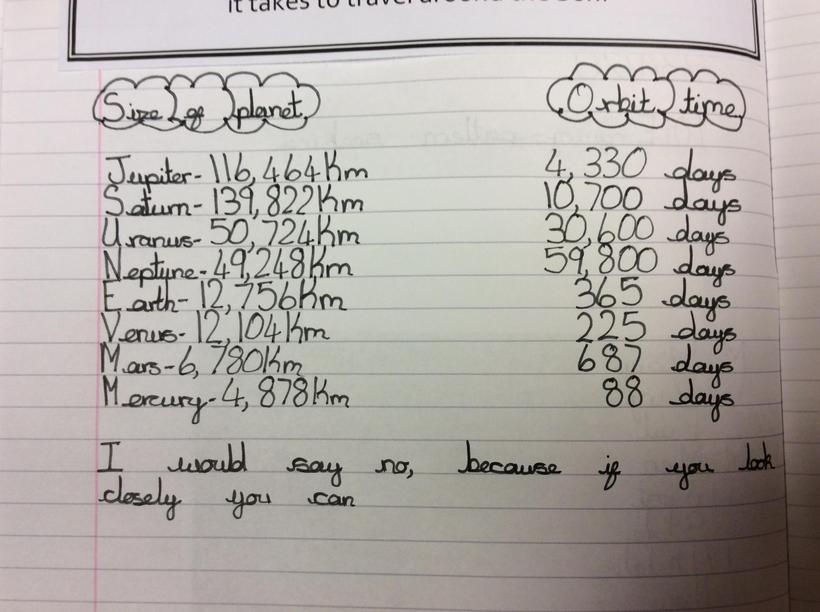 it takes to travel around the
Size of planet Orbit time
Jupiter- 116,464Km 4,330 days
Saturn- 139,822Km 10,700 days
Uranus- 50,724Km 30,600 days
Neptune- 49,248Km 59,800 days
Earth- 12,756Km 365 days
Venus- 12,104Km 225 days
Mars-6,780Km 687 days
Mercury- 4,878Km 88 days
I would say no, because if you look
closely you can